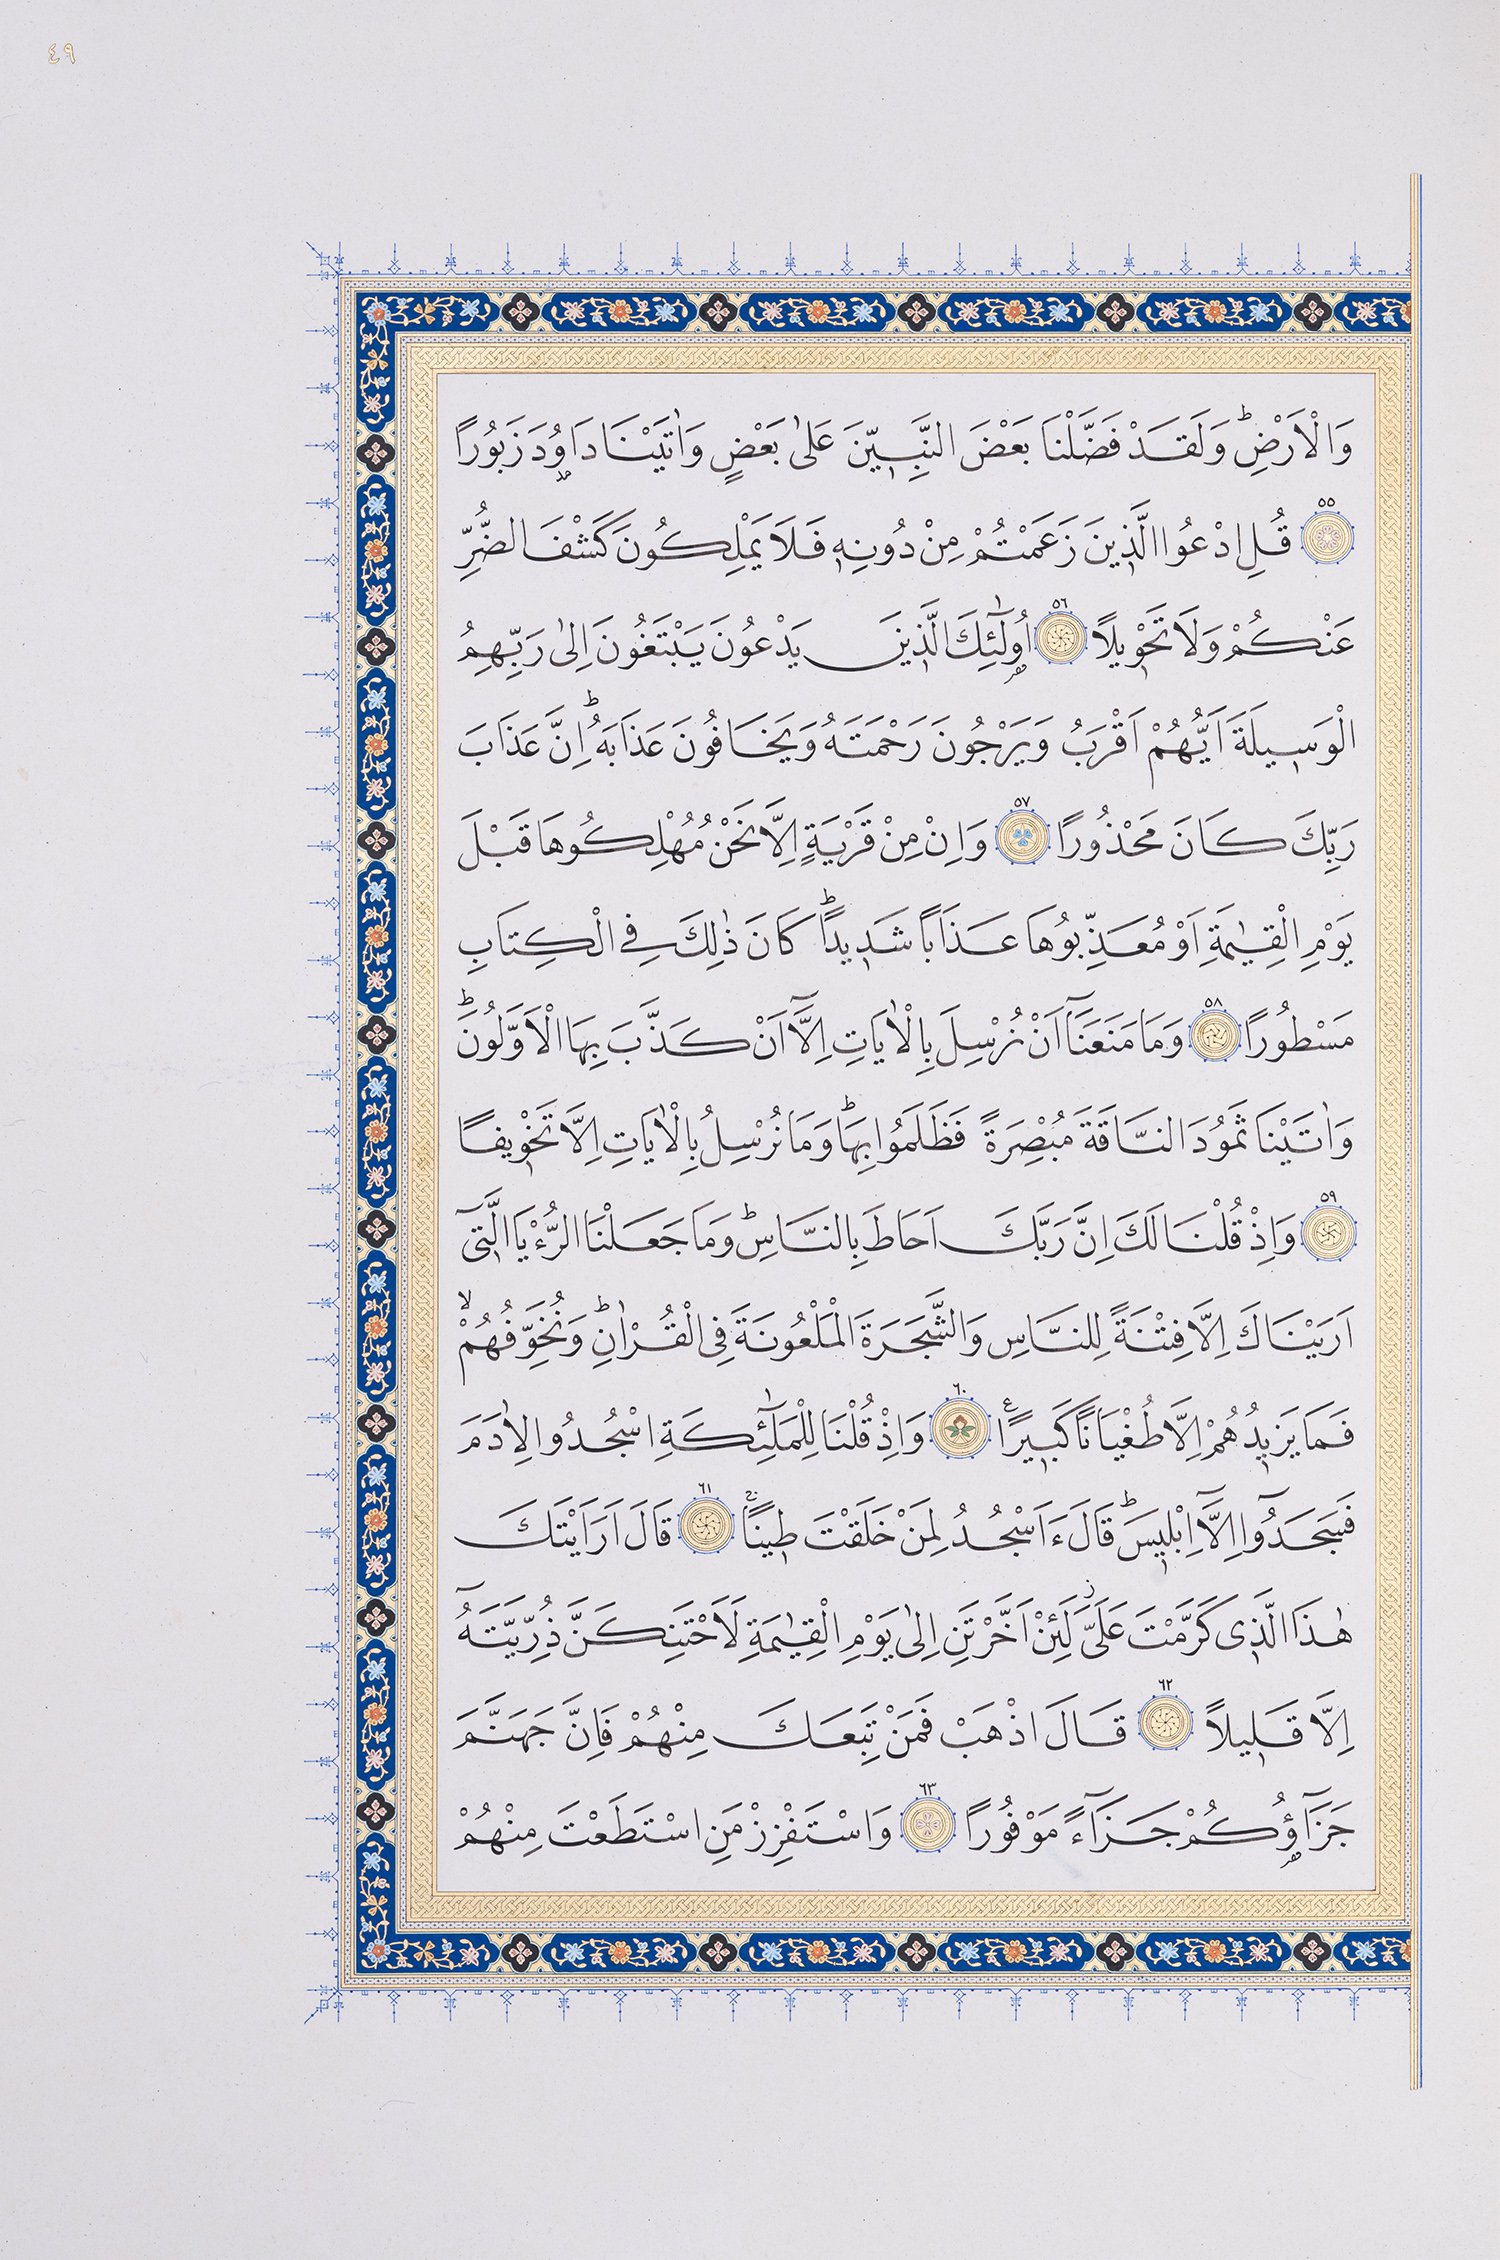 ٤٩
وَالْاَرْضِۜ وَلَقَدْ فَضَّلْنَا بَعْضَ النَّبِيّ۪نَ عَلٰى بَعْضٍ وَاٰتَيْنَا دَاوُ۫دَ زَبُورًا
٥٥ قُلِ ادْعُوا الَّذ۪ينَ زَعَمْتُمْ مِنْ دُونِه۪ فَلَا يَمْلِكُونَ كَشْفَ الضُّرِّ
عَنْكُمْ وَلَا تَحْو۪يلًا ٥٦ اُو۬لٰٓئِكَ الَّذ۪ينَ يَدْعُونَ يَبْتَغُونَ اِلٰى رَبِّهِمُ
الْوَس۪يلَةَ اَيُّهُمْ اَقْرَبُ وَيَرْجُونَ رَحْمَتَهُ وَيَخَافُونَ عَذَابَهُۜ اِنَّ عَذَابَ
رَبِّكَ كَانَ مَحْذُورًا ٥٧ وَاِنْ مِنْ قَرْيَةٍ اِلَّا نَحْنُ مُهْلِكُوهَا قَبْلَ
يَوْمِ الْقِيٰمَةِ اَوْ مُعَذِّبُوهَا عَذَابًا شَد۪يدًاۜ كَانَ ذٰلِكَ فِي الْكِتَابِ
مَسْطُورًا ٥٨ وَمَا مَنَعَنَٓا اَنْ نُرْسِلَ بِالْاٰيَاتِ اِلَّٓا اَنْ كَذَّبَ بِهَا الْاَوَّلُونَۜ
وَاٰتَيْنَا ثَمُودَ النَّاقَةَ مُبْصِرَةً فَظَلَمُوا بِهَاۜ وَمَا نُرْسِلُ بِالْاٰيَاتِ اِلَّا تَخْو۪يفًا
٥٩ وَاِذْ قُلْنَا لَكَ اِنَّ رَبَّكَ اَحَاطَ بِالنَّاسِۜ وَمَا جَعَلْنَا الرُّءْيَا الَّت۪ٓي
اَرَيْنَاكَ اِلَّا فِتْنَةً لِلنَّاسِ وَالشَّجَرَةَ الْمَلْعُونَةَ فِي الْقُرْاٰنِۜ وَنُخَوِّفُهُمْۙ
فَمَا يَز۪يدُهُمْ اِلَّا طُغْيَانًا كَب۪يرًا۟ ٦٠ وَاِذْ قُلْنَا لِلْمَلٰٓئِكَةِ اسْجُدُوا لِاٰدَمَ
فَسَجَدُٓوا اِلَّٓا اِبْل۪يسَۜ قَالَ ءَاَسْجُدُ لِمَنْ خَلَقْتَ ط۪ينًاۚ ٦١ قَالَ اَرَاَيْتَكَ
هٰذَا الَّذ۪ي كَرَّمْتَ عَلَيَّۘ لَئِنْ اَخَّرْتَنِ اِلٰى يَوْمِ الْقِيٰمَةِ لَاَحْتَنِكَنَّ ذُرِّيَّتَهُٓ
اِلَّا قَل۪يلًا ٦٢ قَالَ اذْهَبْ فَمَنْ تَبِعَكَ مِنْهُمْ فَاِنَّ جَهَنَّمَ
جَزَٓاؤُ۬كُمْ جَزَٓاءً مَوْفُورًا ٦٣ وَاسْتَفْزِزْ مَنِ اسْتَطَعْتَ مِنْهُمْ